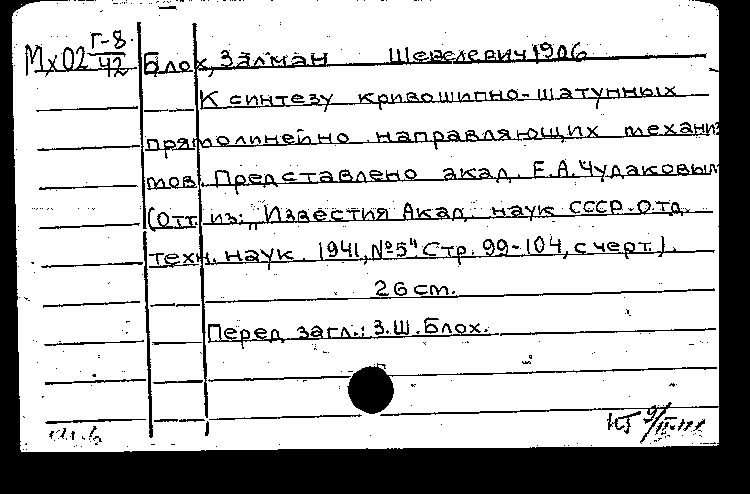 Мх02 Г-8/42 Блох, Залман Шевелевич 1906
К синтезу кривошипно-шатунных
прямолинейно направляющих механиз
мов. Представлено акад. Е.А.Чудаковым
(Отт. из: „Известия Акад. наук СССР. Отд.
техн. наук. 1941, №5" Стр. 99-104, с черт.).
26 cm.
Перед загл.: З.Ш.Блох.